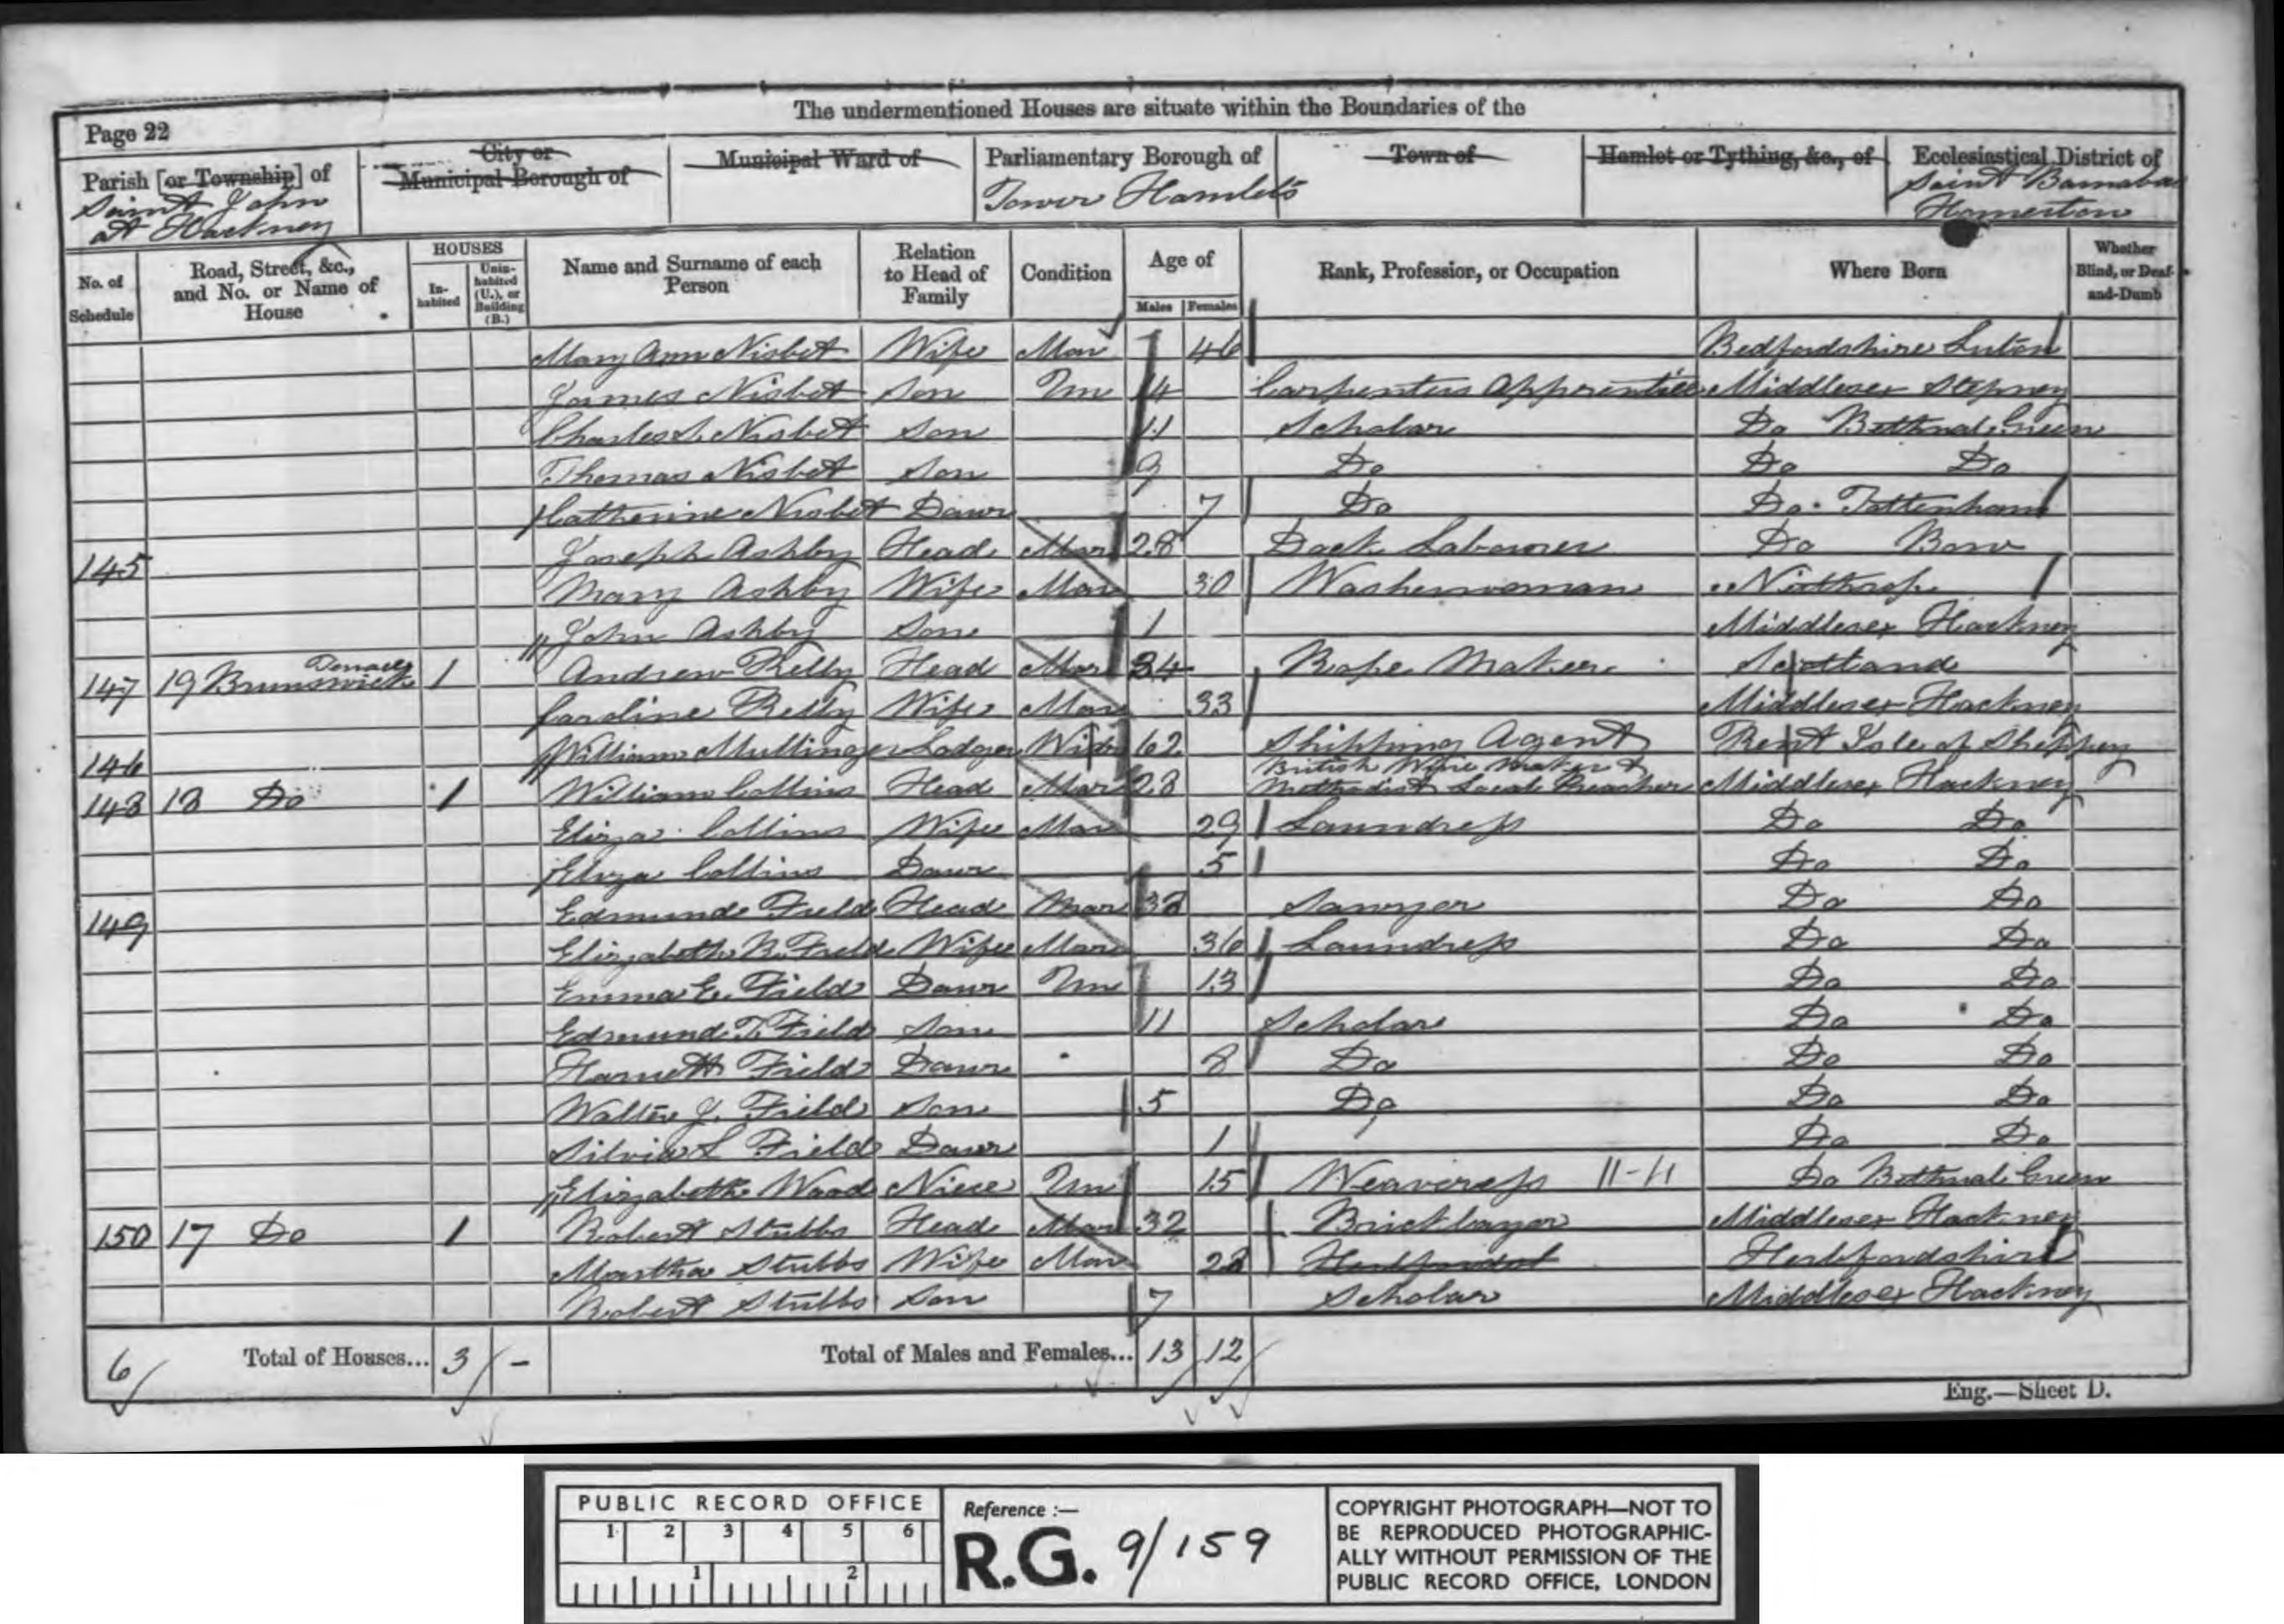 The undermentioned Houses are situate within the Boundaries of the
Page 22
Parish [or Township] of
Saint John
at Hackney
City or
Municipal Borough of
Municipal Ward of
Parliamentary Borough of
Tower Hamlets
Town of
Hamlet or Tything, &c., of
Ecclesiastical District of
Saint Barnabas
Homerton
No. of Schedule
Road, Street, &c., and No. or Name of House
HOUSES
In-habited
Unin-habited (U.), or Building (B.)
Name and Surname of each Person
Relation to Head of Family
Condition
Age of
Males Females
Rank, Profession, or Occupation
Where Born
Whether Blind, or Deaf-and-Dumb
Mary Ann Nisbet Wife Mar 46 Bedfordshire Luton
James Nisbet Son Un 14 Carpenters Apprentice Middlesex Stepney
Charles S. Nisbet Son 11 Scholar Do Bethnal Green
Thomas Nisbet Son 9 Do Do Do
Catherine Nisbet Daur 7 Do Do Tottenham
145 Joseph Ashby Head Mar 28 Dock Labourer Do Bow
Mary Ashby Wife Mar 30 Washerwoman
John Ashby Son 1 Middlesex Hackney
147 19 Brunswick Terrace 1 Andrew Kelly Head Mar 34 Rope Maker Scotland
Caroline Kelly Wife Mar 33 Middlesex Hackney
146 William Mullinger Lodger Widr 62 Shipping Agent Kent Isle of Sheppey
148 18 Do 1 William Collins Head Mar 28 British Wine Maker & Methodist Local Preacher Middlesex Hackney
Eliza Collins Wife Mar 29 Laundress Do Do
Eliza Collins Daur 5 Do Do
149 Edmund Field Head Mar 38 Sawyer Do Do
Elizabeth R. Field Wife Mar 36 Laundress Do Do
Emma E. Field Daur Un 13 Do Do
Edmund T. Field Son 11 Scholar Do Do
Harriett Field Daur 8 Do Do Do
Walter J. Field Son 5 Do Do Do
Silvia S Field Daur 1 Do Do
Elizabeth Wood Niece Un 15 Weaveress 11-11 Do Bethnal Green
150 17 Do 1 Robert Stubbs Head Mar 32 Bricklayer Middlesex Hackney
Martha Stubbs Wife Mar 28 Hertfordshire
Robert Stubbs Son 7 Scholar Middlesex Hackney
6 Total of Houses... 3 - Total of Males and Females... 13 12
Eng.—Sheet D.
PUBLIC RECORD OFFICE
1 2 3 4 5 6
1 2
Reference :—
R.G. 9/159
COPYRIGHT PHOTOGRAPH—NOT TO
BE REPRODUCED PHOTOGRAPHIC-
ALLY WITHOUT PERMISSION OF THE
PUBLIC RECORD OFFICE, LONDON